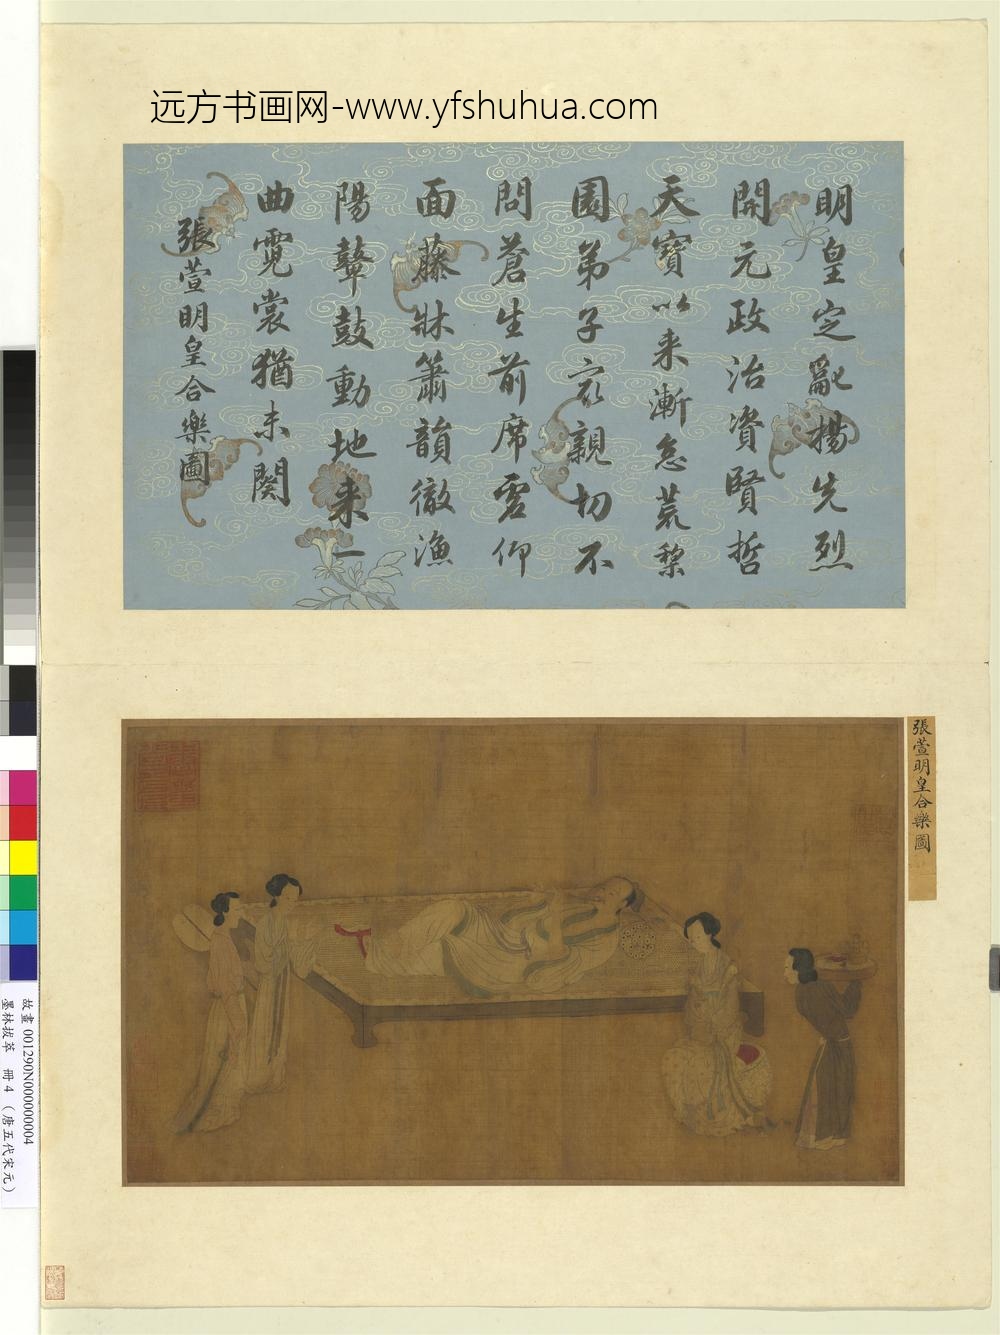 远方书画网-www.yfshuhua.com
明皇定亂揚先烈
開元政治資賢哲
天寶以来漸怠荒黎
園弟子宸親切不
問蒼生前席虛仰
面藤牀簫韻徹漁
陽鼙鼓動地来一
曲霓裳猶未闋
張萱明皇合樂圖
張萱明皇合樂圖
故畫 001290N000000004
墨林拔萃 冊 4 （唐五代宋元）